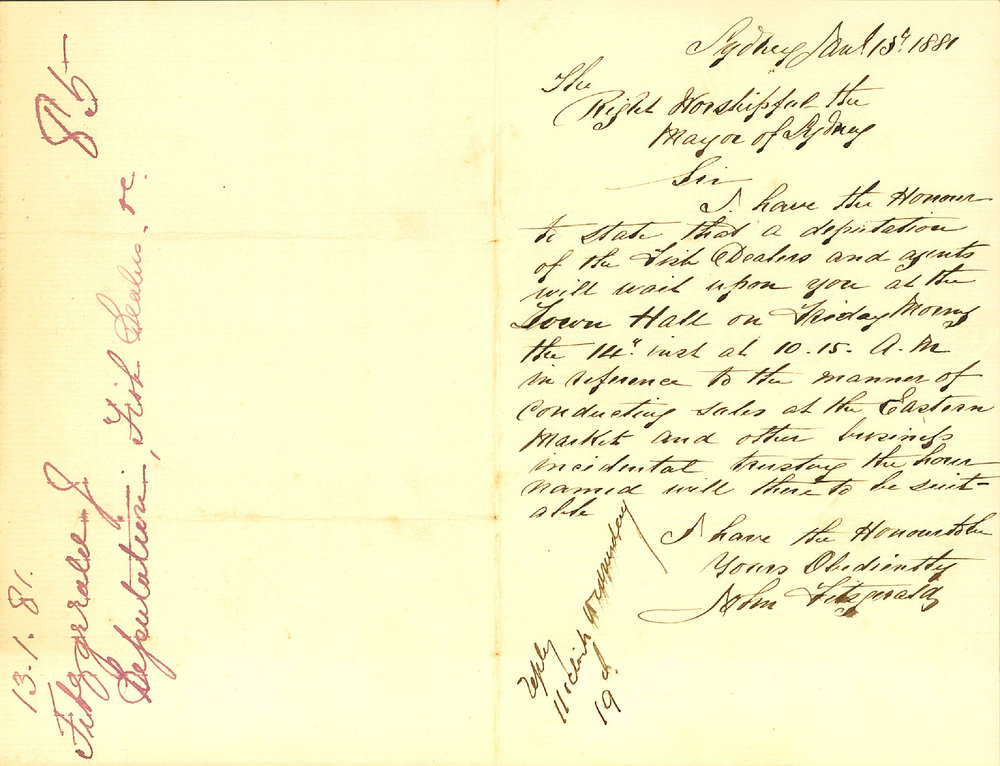 85
13.1.81.
Fitzgerald J
Deputation, Fish Dealers, re.
Sydney Jany 13th 1881
The
Right Worshipful the
Mayor of Sydney
Sir
I have the Honour
to state that a deputation
of the Fish Dealers and agents
will wait upon you at the
Town Hall on Friday Morng
the 14th inst at 10.15. A.M
in reference to the manner of
conducting sales at the Eastern
Market and other business
incidental trusting the hour
named will there to be suit-
able
I have the Honour to be
Yours Obediently
John Fitzgerald
reply
11 o'clock Wednesday
19